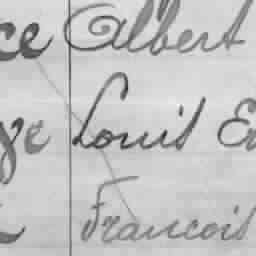 ce Albert
ge Louis E
Francois